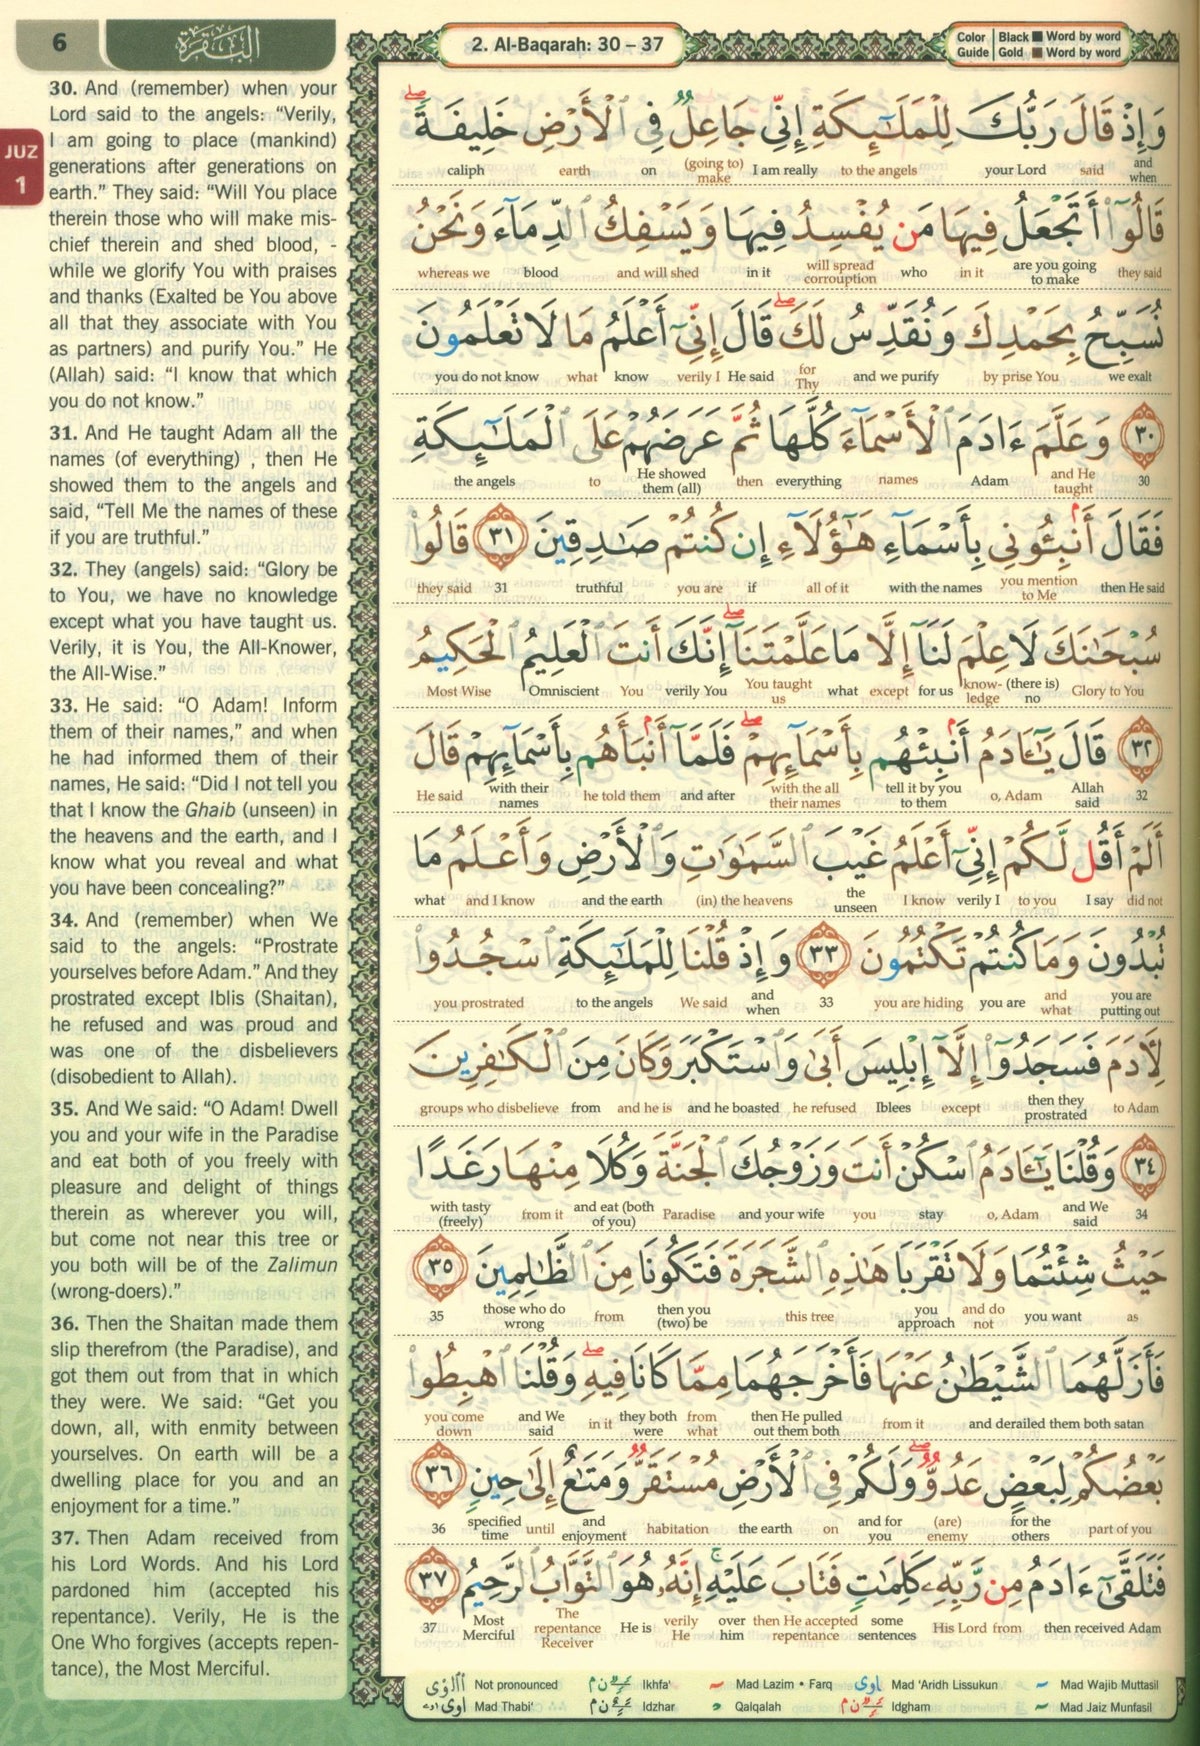 6
البقرة
2. Al-Baqarah: 30 – 37
Color Guide | Black ■ Word by word
Gold ■ Word by word
JUZ
1
30. And (remember) when your
Lord said to the angels: “Verily,
I am going to place (mankind)
generations after generations on
earth.” They said: “Will You place
therein those who will make mis-
chief therein and shed blood, -
while we glorify You with praises
and thanks (Exalted be You above
all that they associate with You
as partners) and purify You.” He
(Allah) said: “I know that which
you do not know.”
31. And He taught Adam all the
names (of everything) , then He
showed them to the angels and
said, “Tell Me the names of these
if you are truthful.”
32. They (angels) said: “Glory be
to You, we have no knowledge
except what you have taught us.
Verily, it is You, the All-Knower,
the All-Wise.”
33. He said: “O Adam! Inform
them of their names,” and when
he had informed them of their
names, He said: “Did I not tell you
that I know the Ghaib (unseen) in
the heavens and the earth, and I
know what you reveal and what
you have been concealing?”
34. And (remember) when We
said to the angels: “Prostrate
yourselves before Adam.” And they
prostrated except Iblis (Shaitan),
he refused and was proud and
was one of the disbelievers
(disobedient to Allah).
35. And We said: “O Adam! Dwell
you and your wife in the Paradise
and eat both of you freely with
pleasure and delight of things
therein as wherever you will,
but come not near this tree or
you both will be of the Zalimun
(wrong-doers).”
36. Then the Shaitan made them
slip therefrom (the Paradise), and
got them out from that in which
they were. We said: “Get you
down, all, with enmity between
yourselves. On earth will be a
dwelling place for you and an
enjoyment for a time.”
37. Then Adam received from
his Lord Words. And his Lord
pardoned him (accepted his
repentance). Verily, He is the
One Who forgives (accepts repen-
tance), the Most Merciful.
وَإِذْ قَالَ رَبُّكَ لِلْمَلَٰٓئِكَةِ إِنِّي جَاعِلٌ فِي ٱلْأَرْضِ خَلِيفَةً ۖ
caliph earth on (going to) make I am really to the angels your Lord said and when
قَالُوٓا۟ أَتَجْعَلُ فِيهَا مَن يُفْسِدُ فِيهَا وَيَسْفِكُ ٱلدِّمَآءَ وَنَحْنُ
whereas we blood and will shed in it will spread corruption who in it are you going to make they said
نُسَبِّحُ بِحَمْدِكَ وَنُقَدِّسُ لَكَ ۖ قَالَ إِنِّيٓ أَعْلَمُ مَا لَا تَعْلَمُونَ
you do not know what know verily I He said for Thy and we purify by prise You we exalt
٣٠ وَعَلَّمَ ءَادَمَ ٱلْأَسْمَآءَ كُلَّهَا ثُمَّ عَرَضَهُمْ عَلَى ٱلْمَلَٰٓئِكَةِ
the angels to He showed them (all) then everything names Adam and He taught 30
فَقَالَ أَنۢبِـُٔونِي بِأَسْمَآءِ هَٰٓؤُلَآءِ إِن كُنتُمْ صَٰدِقِينَ ٣١ قَالُوا۟
they said 31 truthful you are if all of it with the names you mention to Me then He said
سُبْحَٰنَكَ لَا عِلْمَ لَنَآ إِلَّا مَا عَلَّمْتَنَآ ۖ إِنَّكَ أَنتَ ٱلْعَلِيمُ ٱلْحَكِيمُ
Most Wise Omniscient You verily You You taught us what except for us know-ledge (there is) no Glory to You
٣٢ قَالَ يَٰٓـَٔادَمُ أَنۢبِئْهُم بِأَسْمَآئِهِمْ ۖ فَلَمَّآ أَنۢبَأَهُم بِأَسْمَآئِهِمْ قَالَ
He said with their names he told them and after with the all their names tell it by you to them o, Adam Allah said 32
أَلَمْ أَقُل لَّكُمْ إِنِّيٓ أَعْلَمُ غَيْبَ ٱلسَّمَٰوَٰتِ وَٱلْأَرْضِ وَأَعْلَمُ مَا
what and I know and the earth (in) the heavens the unseen I know verily I to you I say did not
تُبْدُونَ وَمَا كُنتُمْ تَكْتُمُونَ ٣٣ وَإِذْ قُلْنَا لِلْمَلَٰٓئِكَةِ ٱسْجُدُوا۟
you prostrated to the angels We said and when 33 you are hiding you are and what you are putting out
لِءَادَمَ فَسَجَدُوٓا۟ إِلَّآ إِبْلِيسَ أَبَىٰ وَٱسْتَكْبَرَ وَكَانَ مِنَ ٱلْكَٰفِرِينَ
groups who disbelieve from and he is and he boasted he refused Iblees except then they prostrated to Adam
٣٤ وَقُلْنَا يَٰٓـَٔادَمُ ٱسْكُنْ أَنتَ وَزَوْجُكَ ٱلْجَنَّةَ وَكُلَا مِنْهَا رَغَدًا
with tasty (freely) from it and eat (both of you) Paradise and your wife you stay o, Adam and We said 34
حَيْثُ شِئْتُمَا وَلَا تَقْرَبَا هَٰذِهِ ٱلشَّجَرَةَ فَتَكُونَا مِنَ ٱلظَّٰلِمِينَ ٣٥
35 those who do wrong from then you (two) be this tree you approach and do not you want as
فَأَزَلَّهُمَا ٱلشَّيْطَٰنُ عَنْهَا فَأَخْرَجَهُمَا مِمَّا كَانَا فِيهِ ۖ وَقُلْنَا ٱهْبِطُوا۟
you come down and We said in it they both were from what then He pulled out them both from it and derailed them both satan
بَعْضُكُمْ لِبَعْضٍ عَدُوٌّ ۖ وَلَكُمْ فِي ٱلْأَرْضِ مُسْتَقَرٌّ وَمَتَٰعٌ إِلَىٰ حِينٍ ٣٦
36 specified time until and enjoyment habitation the earth on and for you (are) enemy for the others part of you
فَتَلَقَّىٰٓ ءَادَمُ مِن رَّبِّهِۦ كَلِمَٰتٍ فَتَابَ عَلَيْهِ ۚ إِنَّهُۥ هُوَ ٱلتَّوَّابُ ٱلرَّحِيمُ ٣٧
37 Most Merciful The repentance Receiver He is verily He over him then He accepted repentance some sentences His Lord from then received Adam
Not pronounced Ikhfa' Mad Lazim • Farq Mad 'Aridh Lissukun Mad Wajib Muttasil
Mad Thabi' Idzhar Qalqalah Idgham Mad Jaiz Munfasil